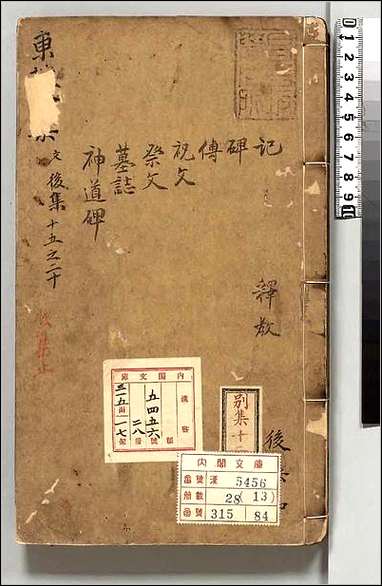 記
碑
傳
祝文
祭文
墓誌
神道碑
釋教
後
東
文 後集 十五之二十
内閣文庫
漢書
五四五六號
二八冊
三一五函
一七架
別集十
内閣文庫
番號 漢 5456
册數 28 (13)
函號 315 84
1 2 3 4 5 6 7 8 9 10